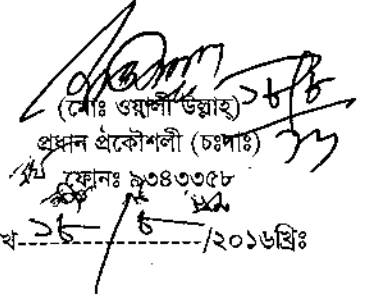 (মোঃ ওয়ালী উল্লাহ)
প্রধান প্রকৌশলী (চঃদাঃ)
ফোনঃ ৯৩৪৩৩৫৮
খ ১৮/৮/২০১৬খ্রিঃ